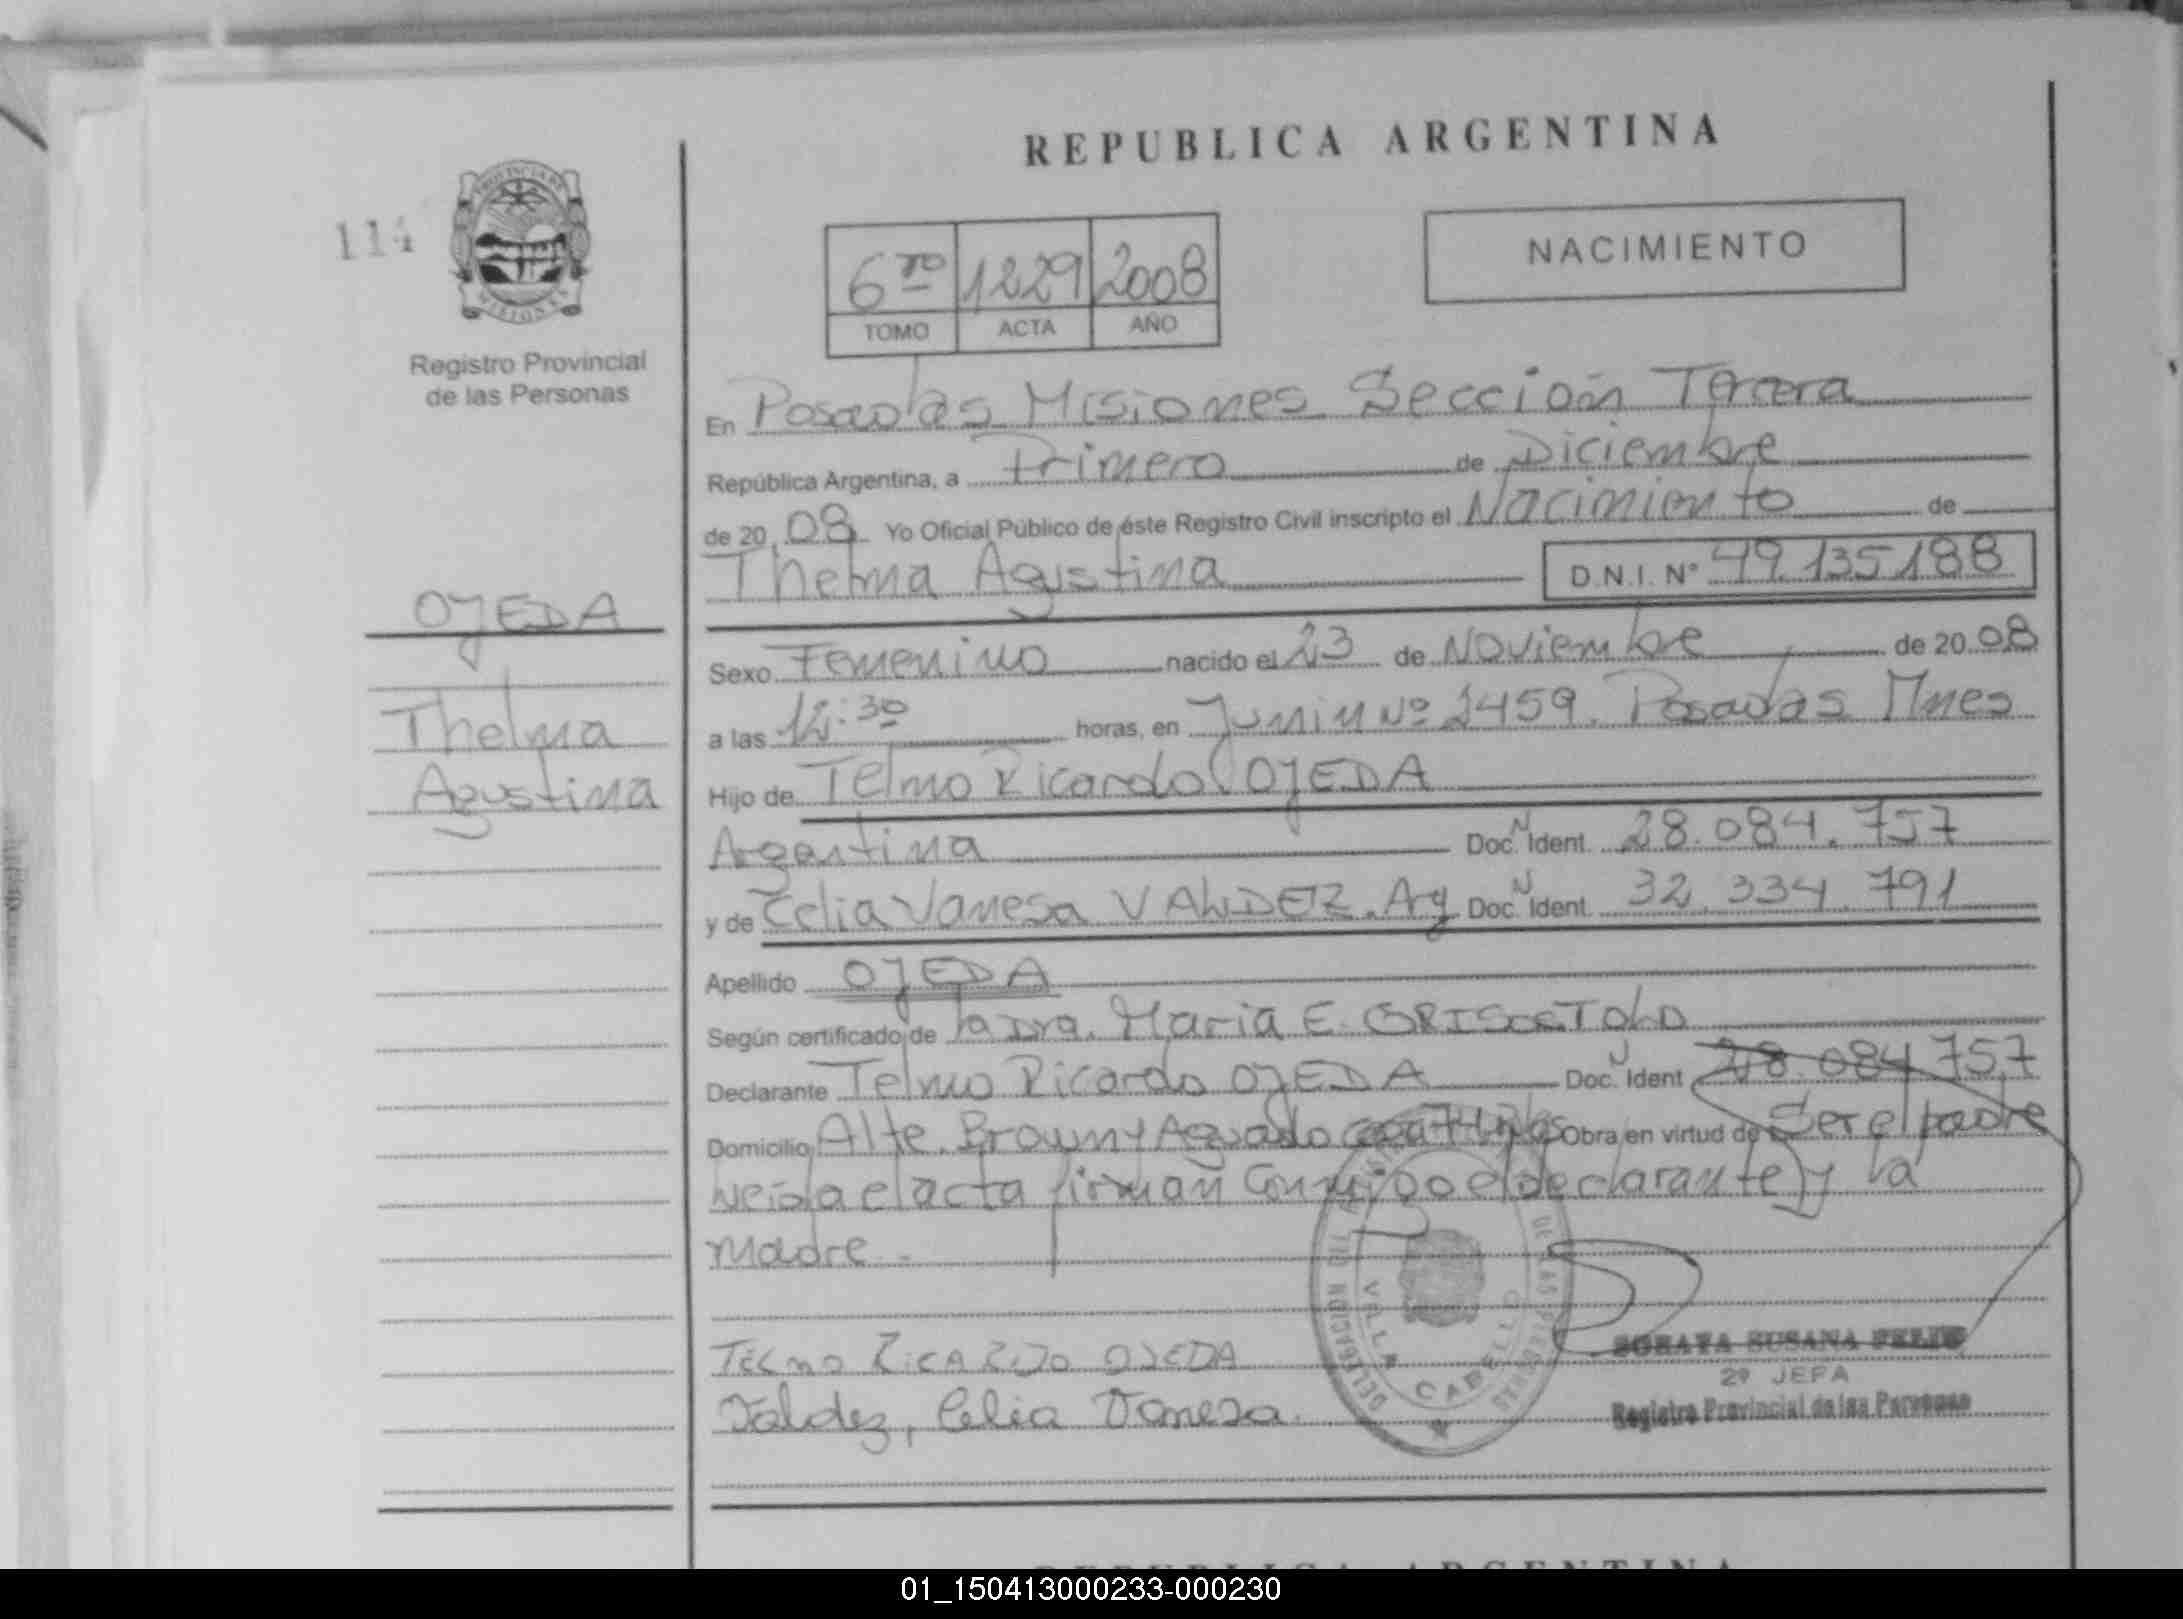 REPUBLICA ARGENTINA
114
PROVINCIA DE
MISIONES
NACIMIENTO
6ro 1229 2008
TOMO ACTA AÑO
Registro Provincial
de las Personas
En Posadas Misiones Sección Tercera
República Argentina, a Primero de Diciembre
de 20 08 Yo Oficial Público de éste Registro Civil inscripto el Nacimiento de
Thelma Agustina D.N.I. N° 49.135.188
OJEDA
Sexo Femenino nacido el 23 de Noviembre de 20 08
Thelma
a las 12:30 horas, en Junin Nº 2459. Posadas Mnes
Agustina
Hijo de Telmo Ricardo OJEDA
Argentina Doc. N Ident. 28.084.757
y de Celia Vanesa VALDEZ. Arg Doc. N Ident. 32.334.791
Apellido OJEDA
Según certificado de la Dra. Maria E. GRISSETOLD
Declarante Telmo Ricardo OJEDA Doc. N Ident 28.084.757
Domicilio Alte. Brown y Aguado Obra en virtud de Ser el padre
Leída el acta firman Conmigo el declarante y la
madre.
TELMO RICARDO OJEDA
Valdez, Celia Vanesa.
DELEGACION
DE LAS PERSONAS
VILLA CABELLO
SORAYA SUSANA
2º JEFA
Registro Provincial de las Personas
REPUBLICA ARGENTINA
01_150413000233-000230